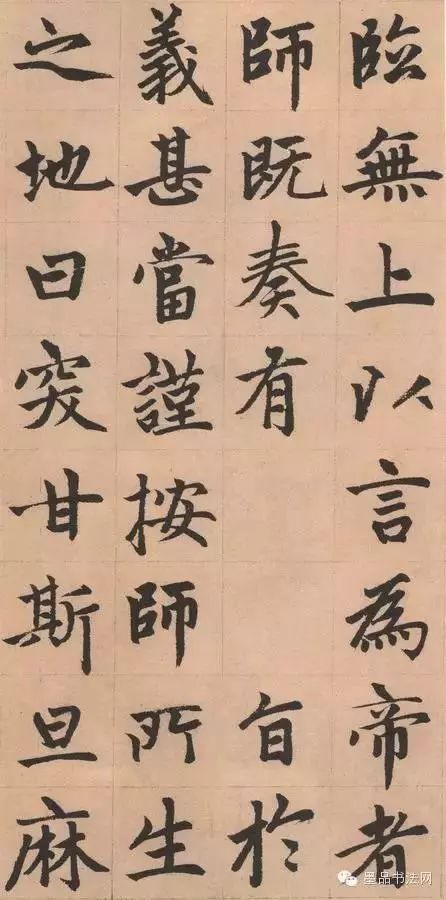 臨無上以言為帝者
師既奏有旨於
義甚當謹按師所生
之地曰突甘斯旦麻
墨品书法网